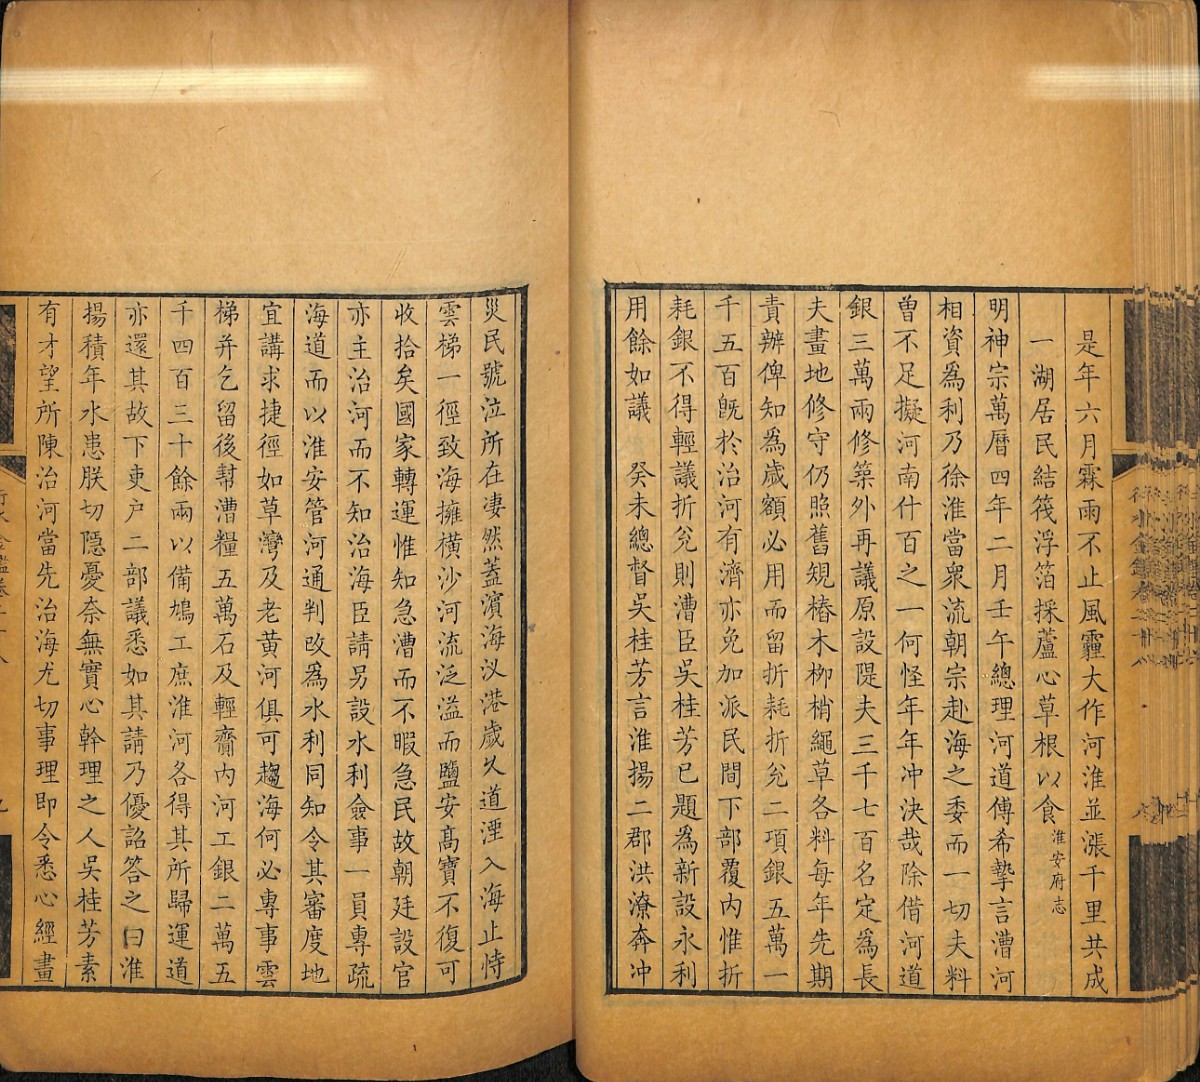 是年六月霖雨不止風霾大作河淮並漲千里共成
一湖居民結筏浮箔採蘆心草根以食淮安府志
明神宗萬曆四年二月壬午總理河道傅希摯言漕河
相資為利乃徐淮當衆流朝宗赴海之委而一切夫料
曾不足擬河南什百之一何怪年年冲決哉除借河道
銀三萬兩修築外再議原設隄夫三千七百名定為長
夫畫地修守仍照舊規樁木柳梢繩草各料每年先期
責辦俾知為歲額必用而留折耗折兌二項銀五萬一
千五百旣於治河有濟亦免加派民間下部覆內惟折
耗銀不得輕議折兌則漕臣吳桂芳已題為新設永利
用餘如議　癸未總督吳桂芳言淮揚二郡洪潦奔冲
災民號泣所在凄然蓋濱海汊港歲久道湮入海止恃
雲梯一徑致海擁橫沙河流泛溢而鹽安高寶不復可
收拾矣國家轉運惟知急漕而不暇急民故朝廷設官
亦主治河而不知治海臣請另設水利僉事一員專疏
海道而以淮安管河通判改為水利同知令其審度地
宜講求捷徑如草灣及老黃河俱可趨海何必專事雲
梯并乞留後幫漕糧五萬石及輕齎內河工銀二萬五
千四百三十餘兩以備鳩工庶淮河各得其所歸運道
亦還其故下吏户二部議悉如其請乃優詔答之曰淮
揚積年水患朕切隱憂奈無實心幹理之人吳桂芳素
有才望所陳治河當先治海尤切事理即令悉心經畫